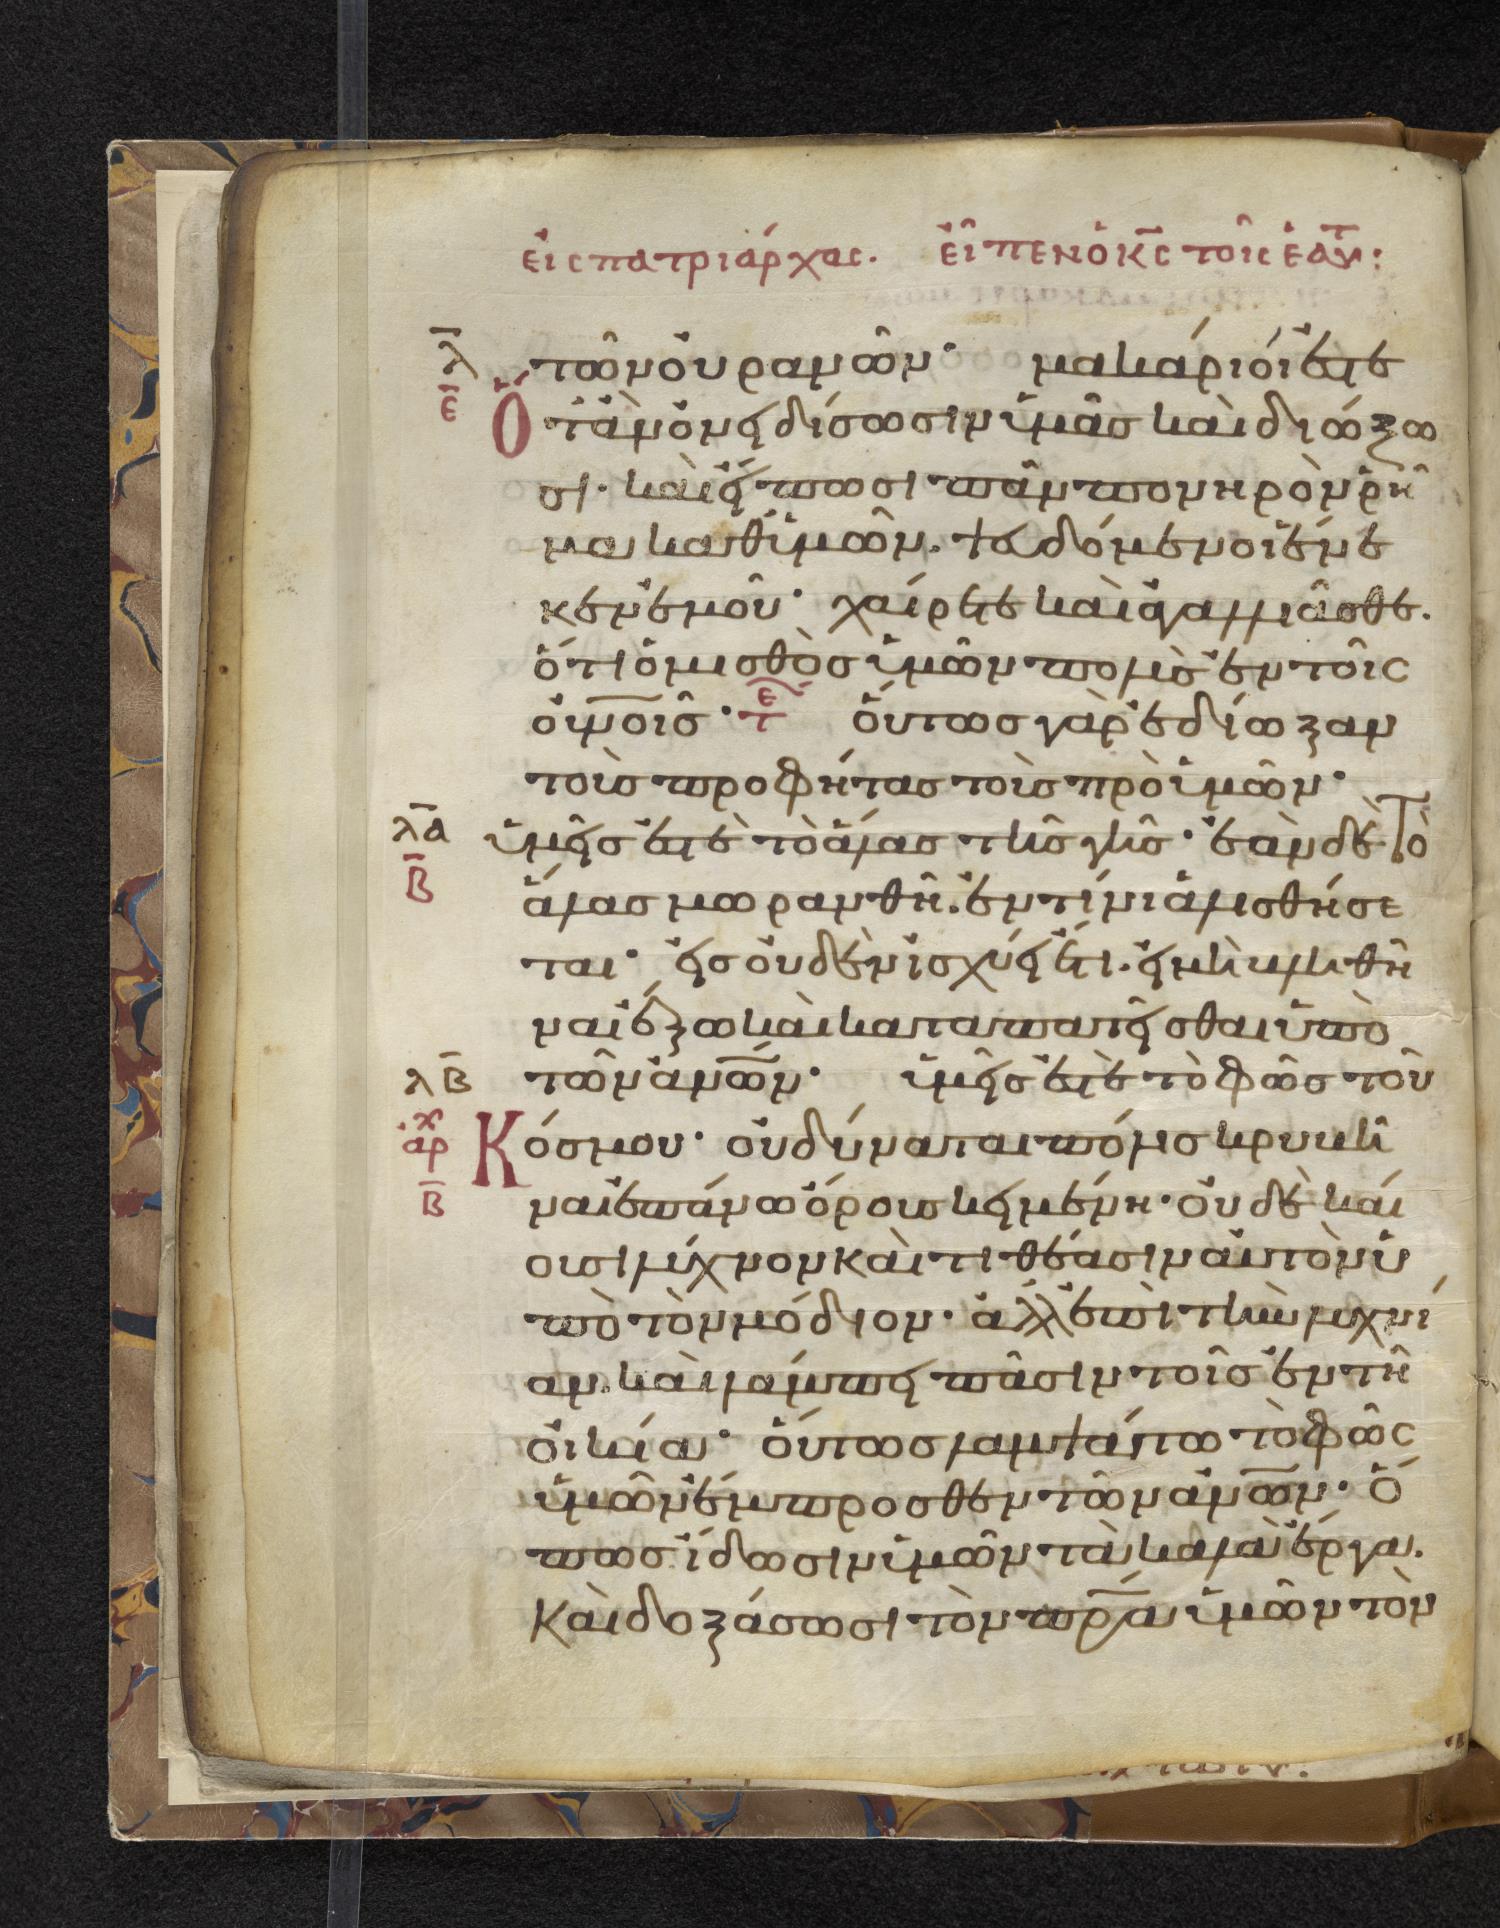 εἰς πατριάρχας. εἶπεν ὁ κ̅ς̅ τοῖς ἑαυ̅τ:
λ̅ τῶν οὐρανῶν· μακάριοί ἐστε
ε̅ ὅταν ὀνειδίσωσιν ὑμᾶς καὶ διώξω
σι· καὶ εἴπωσι πᾶν πονηρὸν ῥῆ
μα καθ' ὑμῶν. ψευδόμενοι ἕνε
κεν ἐμοῦ· χαίρετε καὶ ἀγαλλιᾶσθε.
ὅτι ὁ μισθὸς ὑμῶν πολὺς ἐν τοῖς
οὐ̅ν̅οις· τε οὕτως γὰρ ἐδίωξαν
τοὺς προφήτας τοὺς πρὸ ὑμῶν·
λ̅α̅ ὑμεῖς ἐστὲ τὸ ἅλας τῆς γῆς· ἐὰν δὲ τὸ
β̅ ἅλας μωρανθῆ. ἐν τίνι ἁλισθήσε
ται· εἰς οὐδὲν ἰσχύει ἔτι. εἰ μὴ βληθῆ
ναι ἔξω καὶ καταπατεῖσθαι ὑπὸ
λ̅β̅ τῶν ἀν̅ω̅ν· ὑμεῖς ἐστὲ τὸ φῶς τοῦ
αρχ Κόσμου· οὐ δύναται πόλις κρυβῆ
β̅ ναι ἐπάνω ὄρους κειμένη· οὐδὲ καί
ουσι λύχνον καὶ τιθέασιν αὐτὸν ὑ
πὸ τὸν μόδιον· ἀλλ' ἐπὶ τὴν λυχνί
αν. καὶ λάμπει πᾶσιν τοῖς ἐν τῆ
οἰκία· οὕτως λαμψάτω τὸ φῶς
ὑμῶν ἔμπροσθεν τῶν ἀν̅ω̅ν· ὅ
πως ἴδωσιν ὑμῶν τὰ καλὰ ἔργα.
Καὶ δοξάσωσι τὸν π̅ρ̅α ὑμῶν τὸν